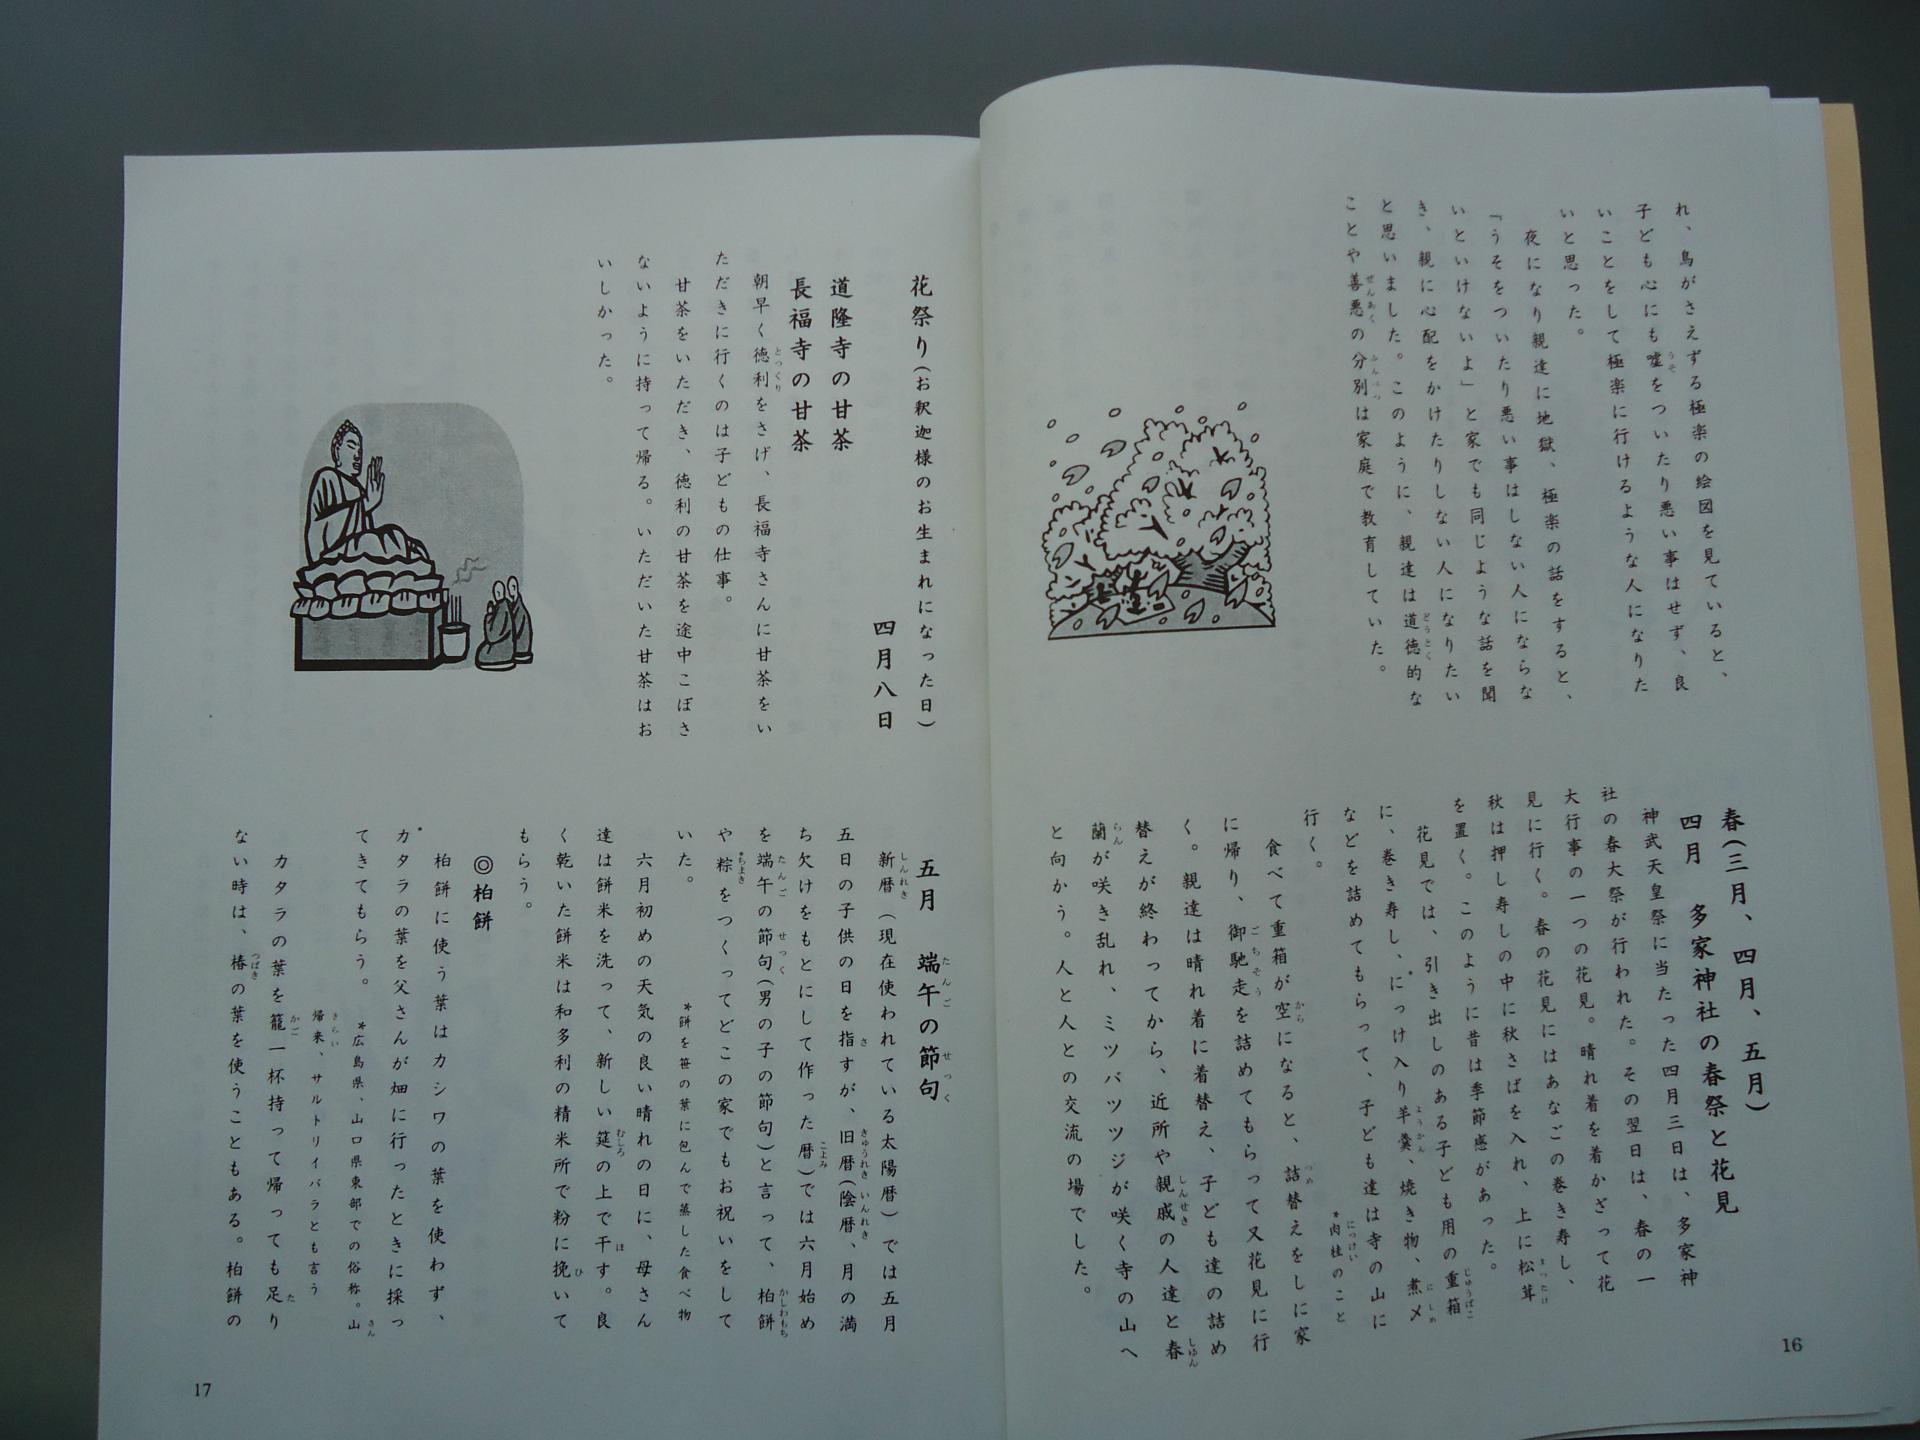 れ、鳥がさえずる極楽の絵図を見ていると、
子ども心にも嘘をついたり悪い事はせず、良
いことをして極楽に行けるような人になりた
いと思った。
夜になり親達に地獄、極楽の話をすると、
「うそをついたり悪い事はしない人にならな
いといけないよ」と家でも同じような話を聞
き、親に心配をかけたりしない人になりたい
と思いました。このように、親達は道徳的な
ことや善悪の分別は家庭で教育していた。
春(三月、四月、五月)
四月 多家神社の春祭と花見
神武天皇祭に当たった四月三日は、多家神
社の春大祭が行われた。その翌日は、春の一
大行事の一つの花見。晴れ着を着かざって花
見に行く。春の花見にはあなごの巻き寿し、
秋は押し寿しの中に秋さばを入れ、上に松茸
を置く。このように昔は季節感があった。
花見では、引き出しのある子ども用の重箱
に、巻き寿し、*にっけ入り羊羹、焼き物、煮〆
などを詰めてもらって、子ども達は寺の山に
行く。
*肉桂のこと
食べて重箱が空になると、詰替えをしに家
に帰り、御馳走を詰めてもらって又花見に行
く。親達は晴れ着に着替え、子ども達の詰め
替えが終わってから、近所や親戚の人達と春
蘭が咲き乱れ、ミツバツツジが咲く寺の山へ
と向かう。人と人との交流の場でした。
16
花祭り(お釈迦様のお生まれになった日)
四月八日
道隆寺の甘茶
長福寺の甘茶
朝早く徳利をさげ、長福寺さんに甘茶をい
ただきに行くのは子どもの仕事。
甘茶をいただき、徳利の甘茶を途中こぼさ
ないように持って帰る。いただいた甘茶はお
いしかった。
五月 端午の節句
新暦(現在使われている太陽暦)では五月
五日の子供の日を指すが、旧暦(陰暦、月の満
ち欠けをもとにして作った暦)では六月始め
を端午の節句(男の子の節句)と言って、柏餅
や*粽をつくってどこの家でもお祝いをして
いた。
*餅を笹の葉に包んで蒸した食べ物
六月初めの天気の良い晴れの日に、母さん
達は餅米を洗って、新しい筵の上で干す。良
く乾いた餅米は和多利の精米所で粉に挽いて
もらう。
◎柏餅
柏餅に使う葉はカシワの葉を使わず、
*カタラの葉を父さんが畑に行ったときに採っ
てきてもらう。
*広島県、山口県東部での俗称。山
帰来、サルトリイバラとも言う
カタラの葉を籠一杯持って帰っても足り
ない時は、椿の葉を使うこともある。柏餅の
17